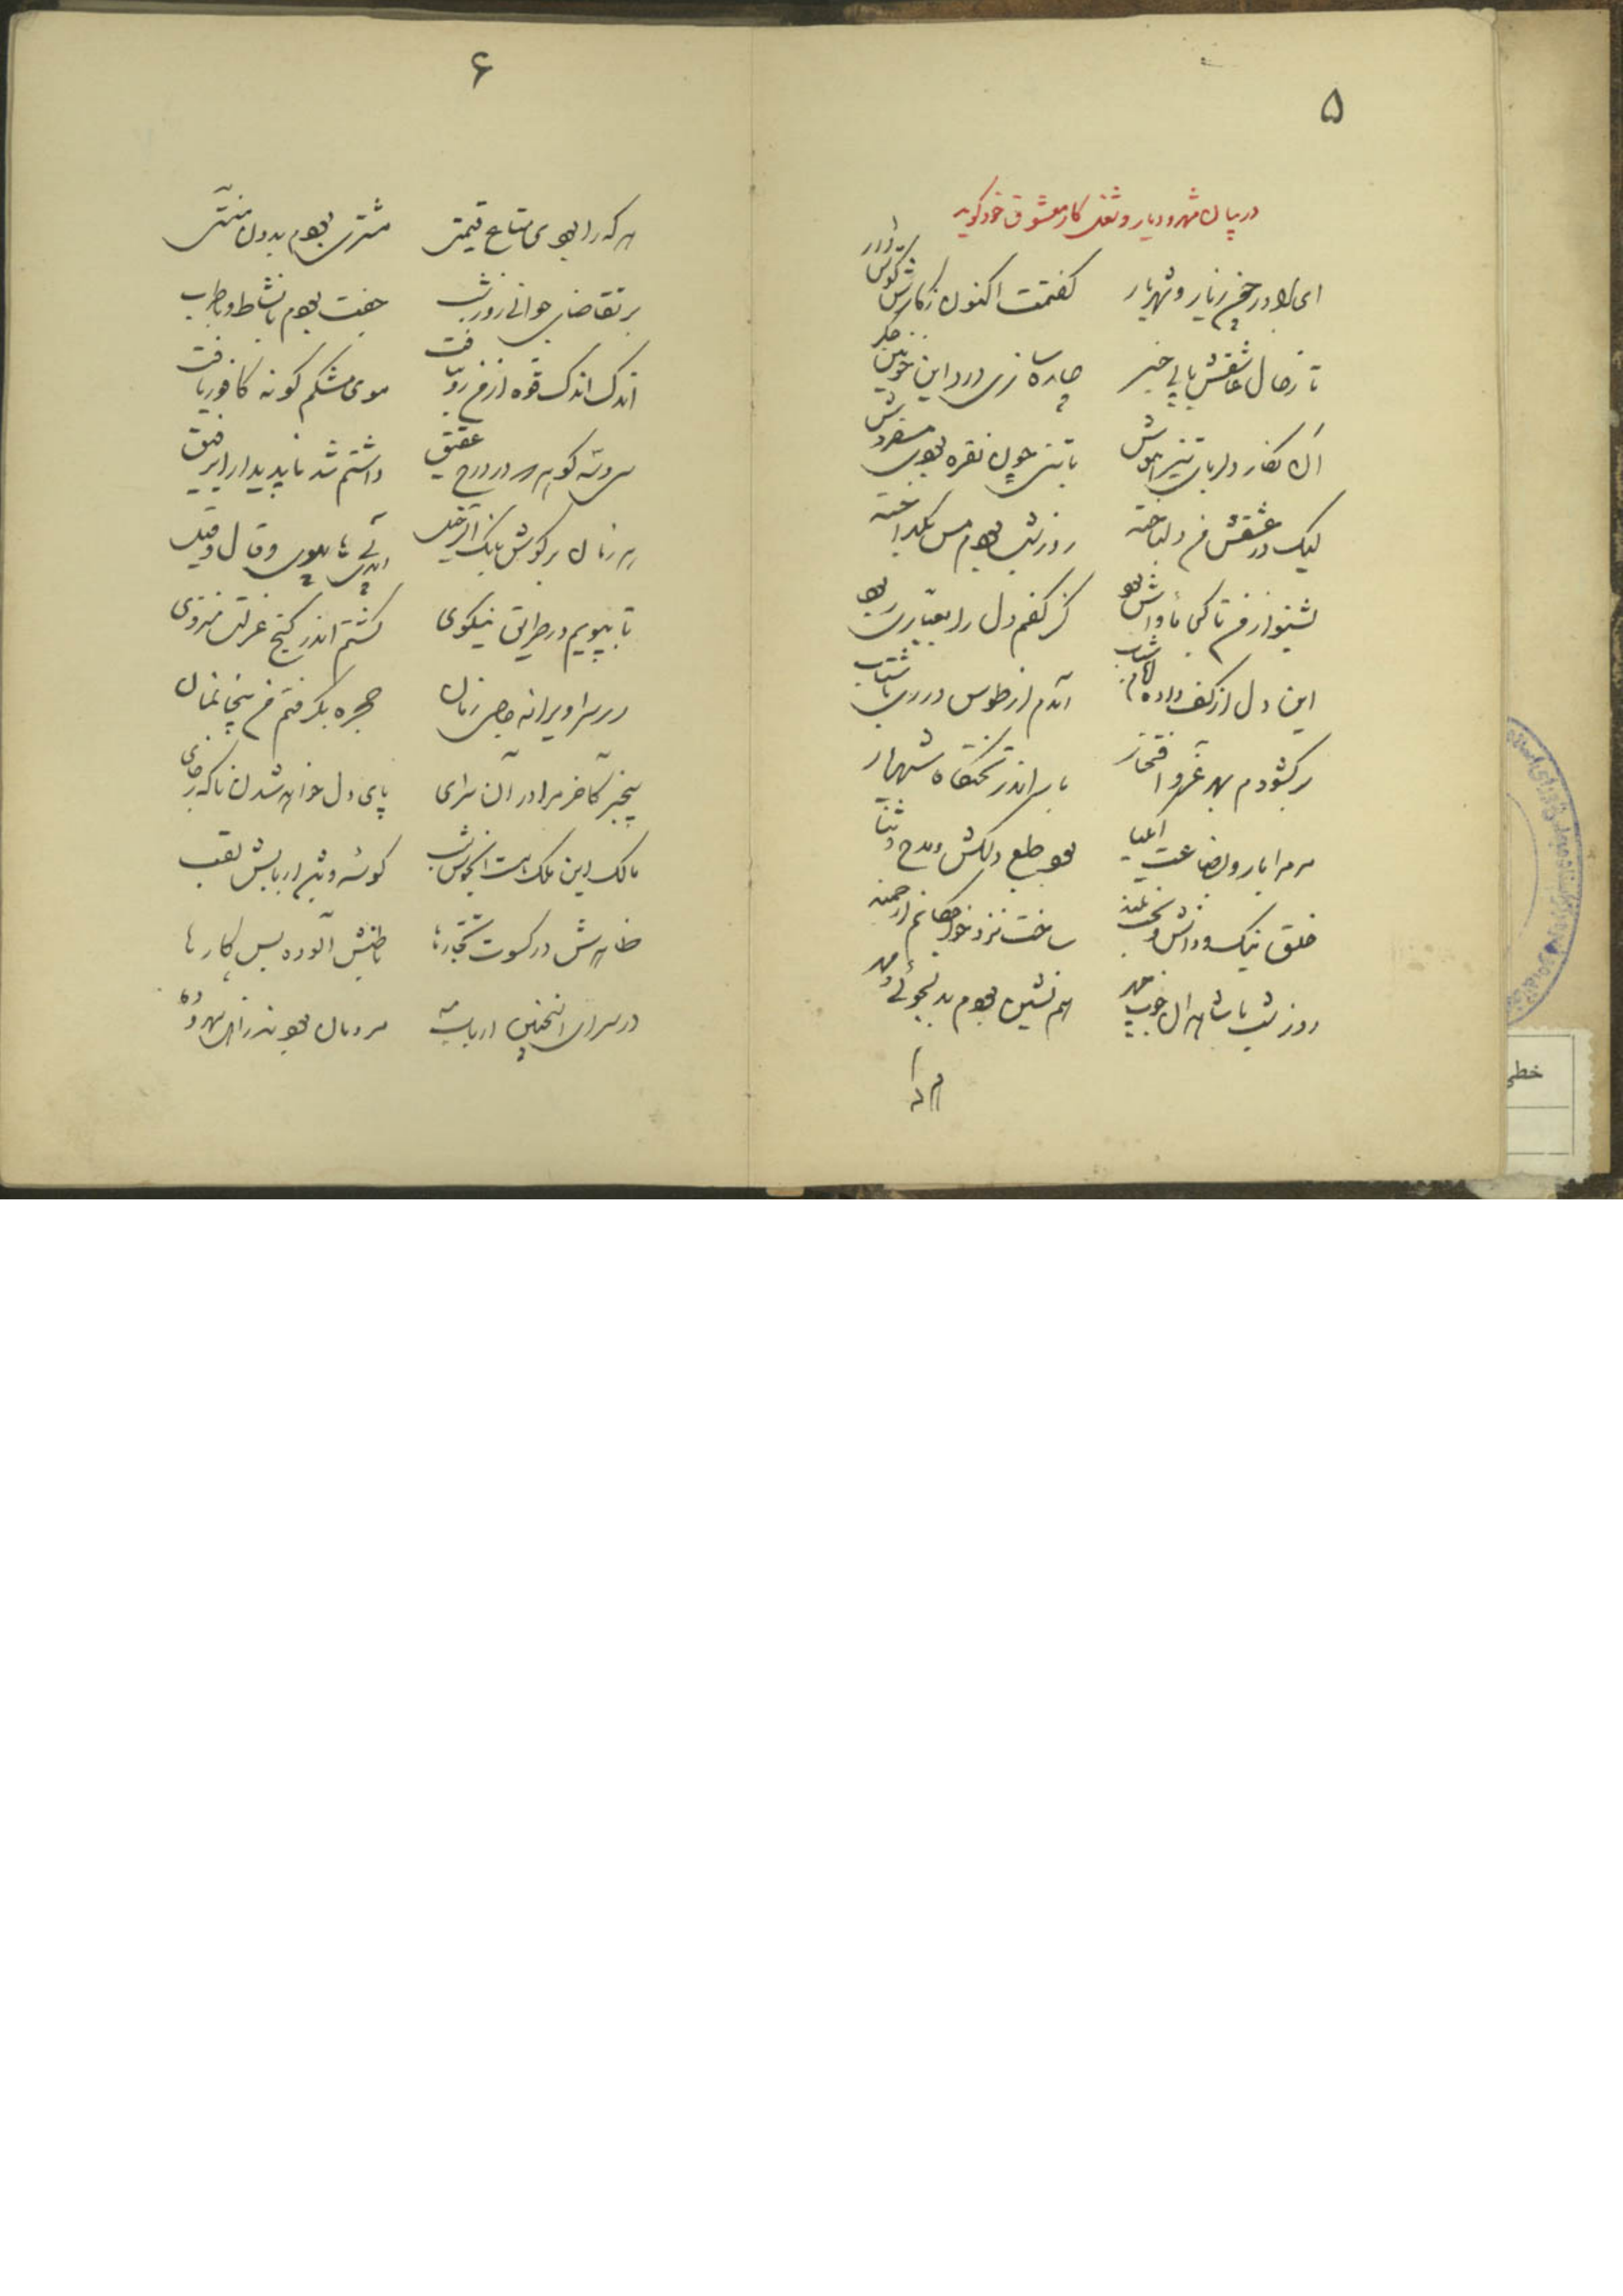 ۵
در بیان شهر و دیار و شغل کار معشوق خود گوید
ای برادر چون ز یار و شهریار گفتمت اکنون ز کارش گوش دار
تا ز حال عاشقش یابی خبر چاره سازی درد این خونین جگر
آن نگار دلربای تیزهوش با تنی چون نقره بودی مسفروش
لیک در عشقش من دلباخته روز و شب بودم مس بگداخته
بشنو از من تا کی ماواش بود کز کفم دل را بعیاری ربود
این دل از کف داده شباب آمدم از طوس در ری با شتاب
برگشودم بهر عز و افتخار بار اندر تختگاه شهریار
مر مرا بار و بضاعت کیمیا بود طبع دلکش و مدح و ثنا
خلق نیک و دانش و بخت بلند ساخت نزد خواجگانم ارجمند
روز و شب با شاهدان خوب چهر هم نشین بودم بدلجوئی و مهر
هر که را
۶
هر که را بودی متاع قیمتی مشتری بودم بدون منتی
بر تقاضای جوانی روز و شب جفت بودم با نشاط و با طرب
اندک اندک قوه از من رو بتافت موی مشکم گونه کافور یافت
سی و سه گوهر در درج عقیق داشتم شد ناپدیدار ای رفیق
هر زمان بر گوش بانگ الرحیل آمدی بی های هوی و قال و قیل
تا بپویم در طریق نیکوی گشتم اندر کنج عزلت منزوی
در سرا ویرانه حاجی زمان حجره بگرفتم من بیخانمان
بیخبر کآخر مرا در آن سرای پای دل خواهد شدن ناگه ز جای
مالک این ملک هست کوسه و ریش لقب
ظاهرش در کسوت تجارها باطنش آلوده بس کارها
در سرای اینچنین مردمان بودند زاهل
خطی